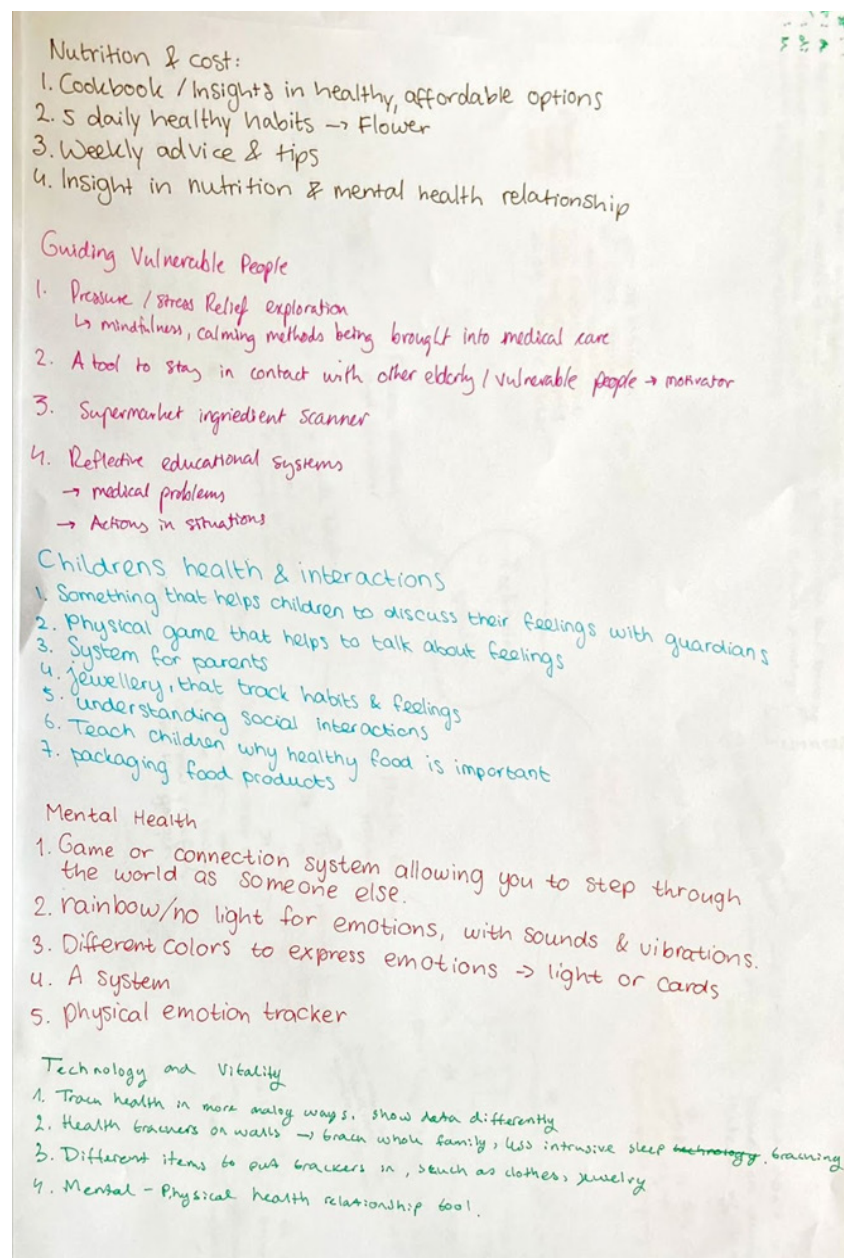 Nutrition & cost:
1. Cookbook / Insights in healthy, affordable options
2. 5 daily healthy habits → Flower
3. Weekly advice & tips
4. Insight in nutrition & mental health relationship
Guiding Vulnerable People
1. Pressure / Stress Relief exploration
↳ mindfulness, calming methods being brought into medical care
2. A tool to stay in contact with other elderly / vulnerable people → motivator
3. Supermarket ingriedient scanner
4. Reflective educational systems
→ medical problems
→ Actions in situations
Childrens health & interactions
1. Something that helps children to discuss their feelings with guardians
2. Physical game that helps to talk about feelings
3. System for parents
4. jewellery, that track habits & feelings
5. understanding social interactions
6. Teach children why healthy food is important
7. packaging food products
Mental Health
1. Game or connection system allowing you to step through
the world as someone else.
2. rainbow/no light for emotions, with sounds & vibrations.
3. Different colors to express emotions → light or cards
4. A system
5. physical emotion tracker
Technology and Vitality
1. Track health in more analog ways. show data differently
2. Health trackers on walls → track whole family, less intrusive sleep technology. tracking
3. Different items to put trackers in, such as clothes, jewelry
4. Mental - Physical health relationship tool.